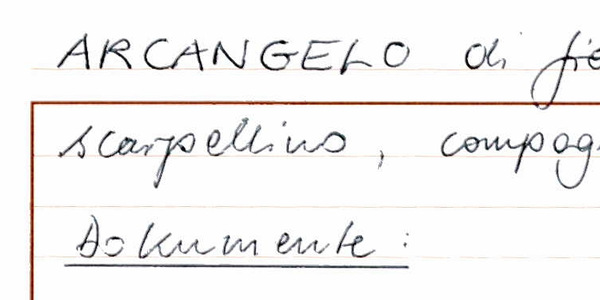 ARCANGELO di fie
scarpellino, compag
Dokumente: